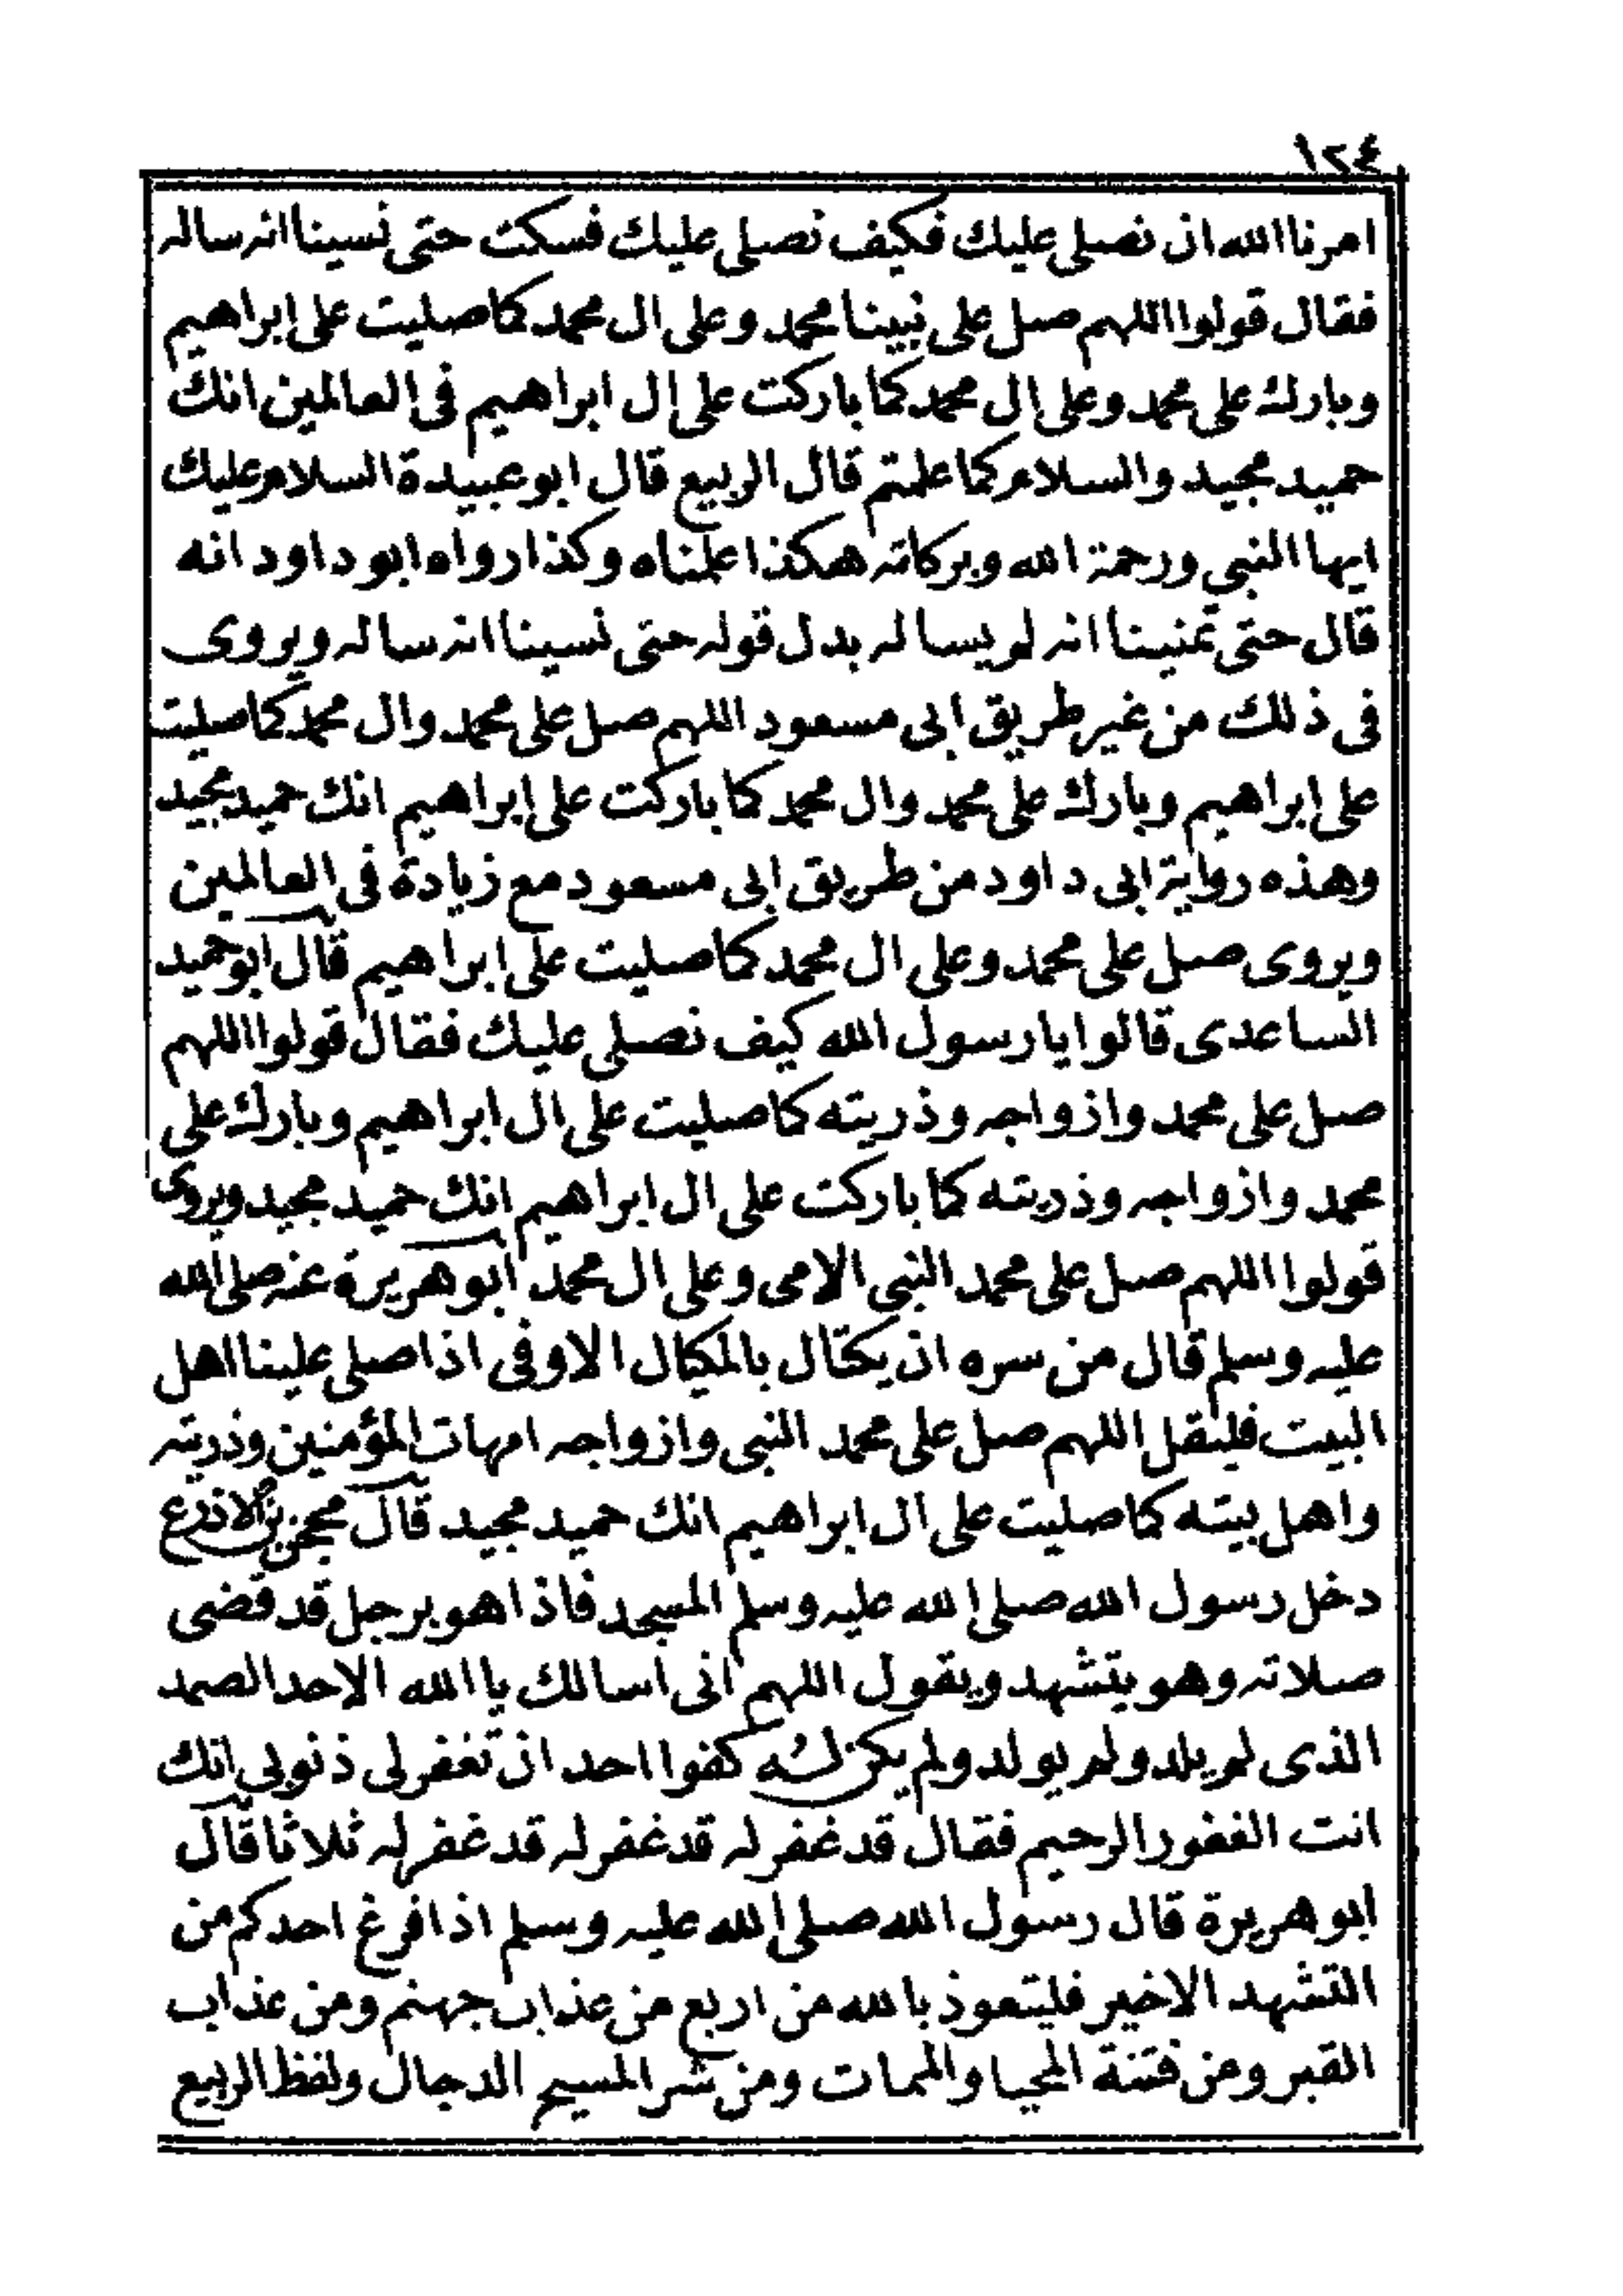 ١٢٤
امرنا الله ان نصلى عليك فكيف نصلى عليك فسكت حتى نسينا انه ساله
فقال قولوا اللهم صل على نبينا محمد وعلى ال محمد كما صليت على ابراهيم
وبارك على محمد وعلى ال محمد كما باركت على ال ابراهيم فى العالمين انك
حميد مجيد والسلام كما علمتم قال الربيع قال ابو عبيدة السلام عليك
ايها النبي ورحمة الله وبركاته هكذا علمناه وكذا رواه ابو داود انه
قال حتى تمنينا انه لو يساله بدل قوله حتى نسينا انه ساله ويروى
فى ذلك من غير طريق ابى مسعود اللهم صل على محمد وال محمد كما صليت
على ابراهيم وبارك على محمد وال محمد كما باركت على ابراهيم انك حميد مجيد
وهذه رواية ابى داود من طريق ابى مسعود مع زيادة فى العالمين
ويروى صل على محمد وعلى ال محمد كما صليت على ابراهيم قال ابو حميد
الساعدى قالوا يا رسول الله كيف نصلى عليك فقال قولوا اللهم
صل على محمد وازواجه وذريته كما صليت على ال ابراهيم وبارك على
محمد وازواجه وذريته كما باركت على ال ابراهيم انك حميد مجيد ويروى
قولوا اللهم صل على محمد النبي الامى وعلى ال محمد ابو هريرة عنه صلى الله
عليه وسلم قال من سره ان يكتال بالمكيال الاوفى اذا صلى علينا اهل
البيت فليقل اللهم صل على محمد النبي وازواجه امهات المؤمنين وذريته
واهل بيته كما صليت على ال ابراهيم انك حميد مجيد قال محجن بن الاذرع
دخل رسول الله صلى الله عليه وسلم المسجد فاذا هو برجل قد قضى
صلاته وهو يتشهد ويقول اللهم انى اسالك يا الله الاحد الصمد
الذى لم يلد ولم يولد ولم يكن له كفوا احد ان تغفر لى ذنوبي انك
انت الغفور الرحيم فقال قد غفر له قد غفر له قد غفر له ثلاثا قال
ابو هريرة قال رسول الله صلى الله عليه وسلم اذا فرغ احدكم من
التشهد الاخير فليتعوذ بالله من اربع من عذاب جهنم ومن عذاب
القبر ومن فتنة المحيا والممات ومن شر المسيح الدجال ولفظ الربيع